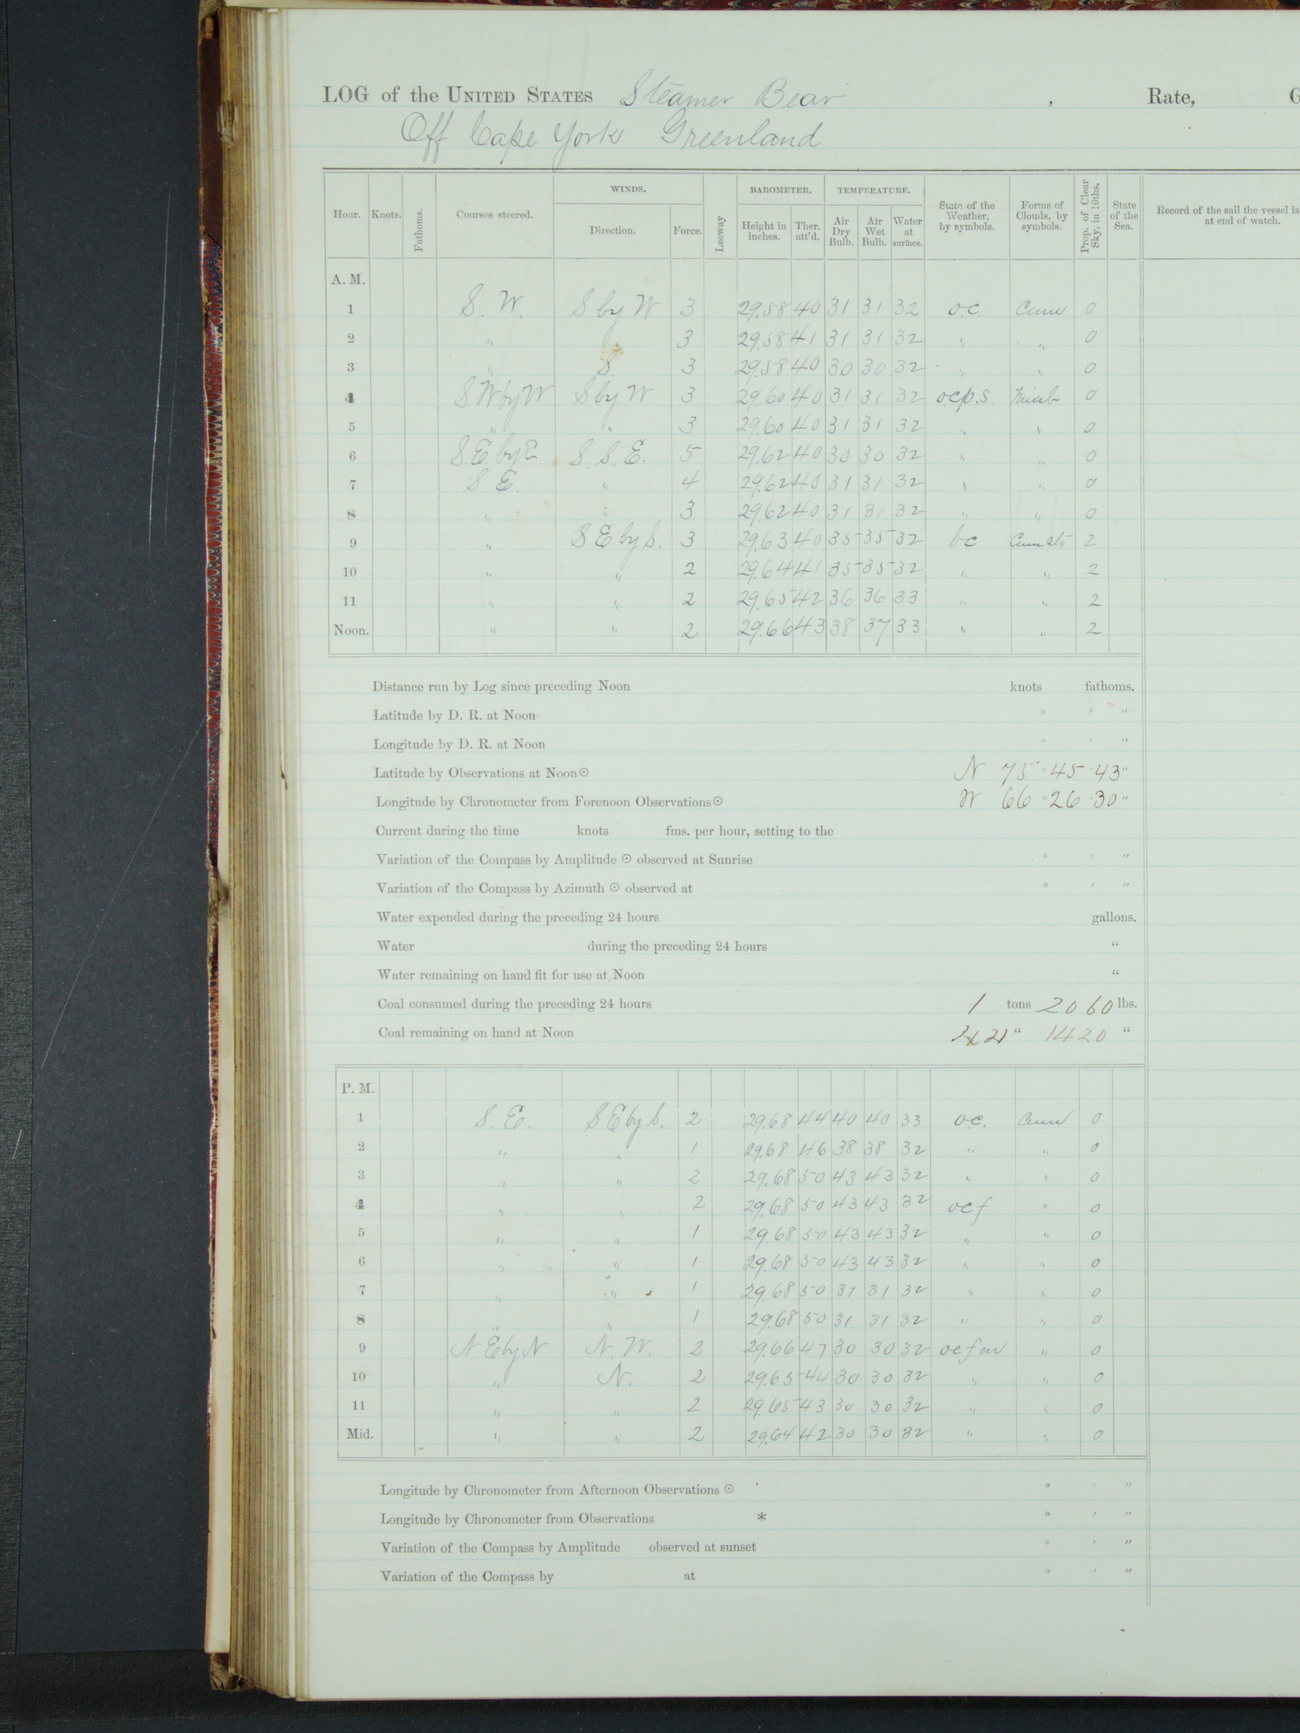 LOG of the UNITED STATES Steamer Bear , Rate, G
Off Cape York Greenland
Hour. Knots. Fathoms. Courses steered. WINDS. Direction. Force. Leeway BAROMETER. Height in inches. Ther. att'd. TEMPERATURE. Air Dry Bulb. Air Wet Bulb. Water at surface. State of the Weather, by symbols. Forms of Clouds, by symbols. Prop. of Clear Sky, in 10ths. State of the Sea. Record of the sail the vessel is at end of watch.
A. M.
1 S. W. S by W 3 29.58 40 31 31 32 o.c. Cum 0
2 " " 3 29.58 41 31 31 32 " " 0
3 " S. 3 29.58 40 30 30 32 " " 0
4 SW by W S by W 3 29.60 40 31 31 32 o.c.p.s. Nimb 0
5 " " 3 29.60 40 31 31 32 " " 0
6 S.E. by E. S. S. E. 5 29.62 40 30 30 32 " " 0
7 S. E. " 4 29.62 40 31 31 32 " " 0
8 " " 3 29.62 40 31 31 32 " " 0
9 " S E by S. 3 29.63 40 35 35 32 bc Cum str 2
10 " " 2 29.64 41 35 35 32 " " 2
11 " " 2 29.65 42 36 36 33 " " 2
Noon. " " 2 29.66 43 38 37 33 " " 2
Distance run by Log since preceding Noon knots fathoms.
Latitude by D. R. at Noon ° ' "
Longitude by D. R. at Noon ° ' "
Latitude by Observations at Noon ☉ N 75 ° 45 ' 43 "
Longitude by Chronometer from Forenoon Observations ☉ W 66 ° 26 ' 30 "
Current during the time knots fms. per hour, setting to the
Variation of the Compass by Amplitude ☉ observed at Sunrise ° ' "
Variation of the Compass by Azimuth ☉ observed at ° ' "
Water expended during the preceding 24 hours gallons.
Water during the preceding 24 hours "
Water remaining on hand fit for use at Noon "
Coal consumed during the preceding 24 hours 1 tons 2060 lbs.
Coal remaining on hand at Noon " 1420 "
P. M.
1 S. E. S E by S. 2 29.68 44 40 40 33 o.c. Cum 0
2 " " 1 29.68 46 38 38 32 " " 0
3 " " 2 29.68 50 43 43 32 " " 0
4 " " 2 29.68 50 43 43 32 ocf " 0
5 " " 1 29.68 50 43 43 32 " " 0
6 " " 1 29.68 50 43 43 32 " " 0
7 " " 1 29.68 50 31 31 32 " " 0
8 " " 1 29.68 50 31 31 32 " " 0
9 N E by N N. W. 2 29.66 47 30 30 32 ocfm " 0
10 " N. 2 29.65 44 30 30 32 " " 0
11 " " 2 29.65 43 30 30 32 " " 0
Mid. " " 2 29.64 42 30 30 32 " " 0
Longitude by Chronometer from Afternoon Observations ☉ ° ' "
Longitude by Chronometer from Observations * ° ' "
Variation of the Compass by Amplitude observed at sunset ° ' "
Variation of the Compass by at ° ' "